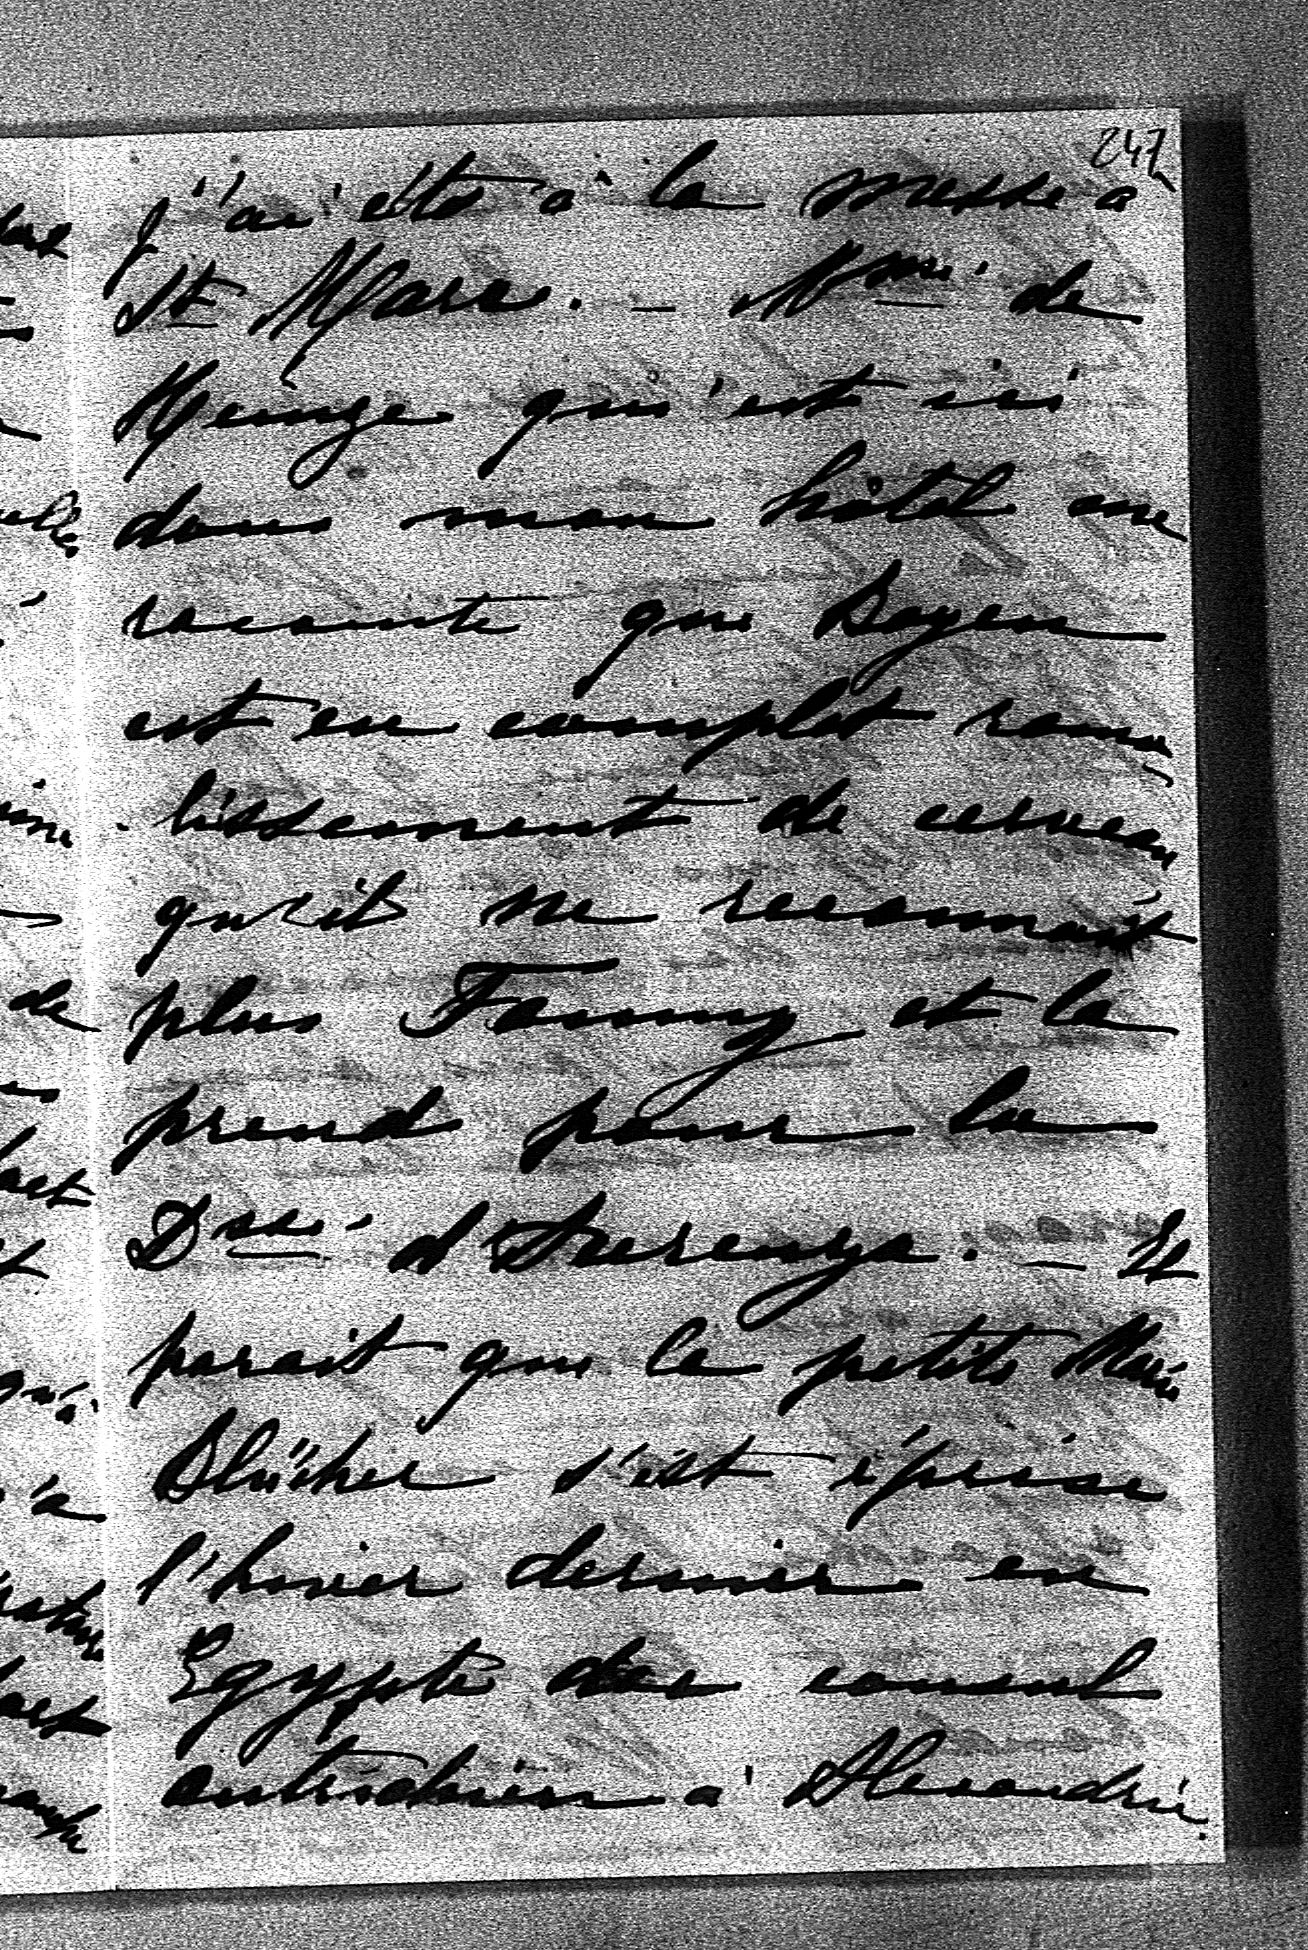 247
j'ai été à la messe à
St Marc. — Mme de
Meinge qui est ici
dans mon hôtel me
raconte que Bogen
est en complet ramo-
lissement de cerveau
qu'il ne reconnait
plus Fanny et la
prend pour la
Dsse d'Aurenga. — Il
parait que la petite Marie
Blücher s'est éprise
l'hiver dernier en
Egypte du consul
autrichien à Alexandrie.